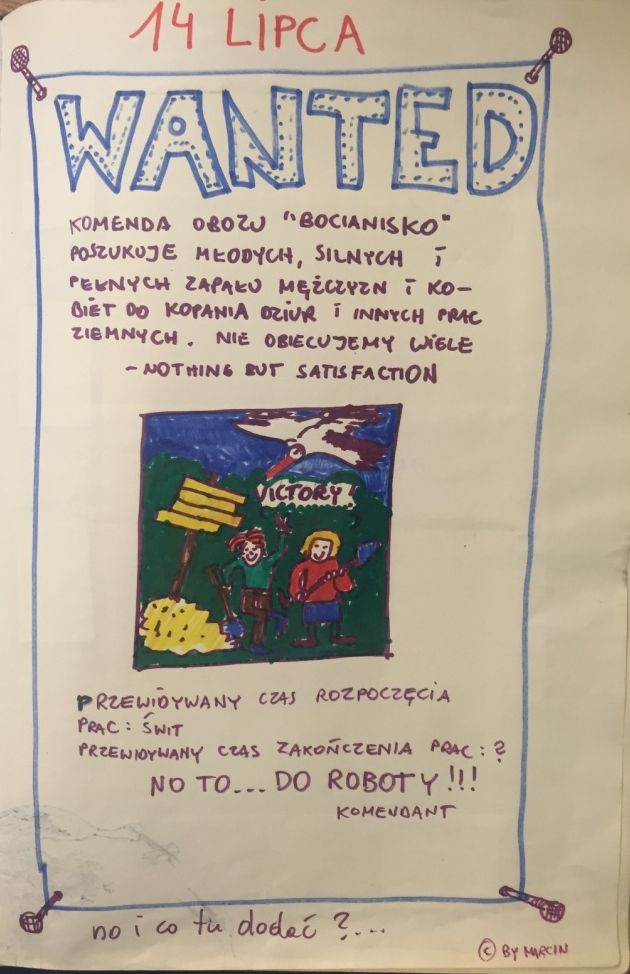 14 LIPCA
WANTED
KOMENDA OBOZU "BOCIANISKO"
POSZUKUJE MŁODYCH, SILNYCH I
PEŁNYCH ZAPAŁU MĘŻCZYZN I KO-
BIET DO KOPANIA DZIUR I INNYCH PRAC
ZIEMNYCH. NIE OBIECUJEMY WIELE
- NOTHING BUT SATISFACTION
VICTORY!
PRZEWIDYWANY CZAS ROZPOCZĘCIA
PRAC: ŚWIT
PRZEWIDYWANY CZAS ZAKOŃCZENIA PRAC: ?
NO TO... DO ROBOTY!!!
KOMENDANT
no i co tu dodać?...
© BY MARCIN